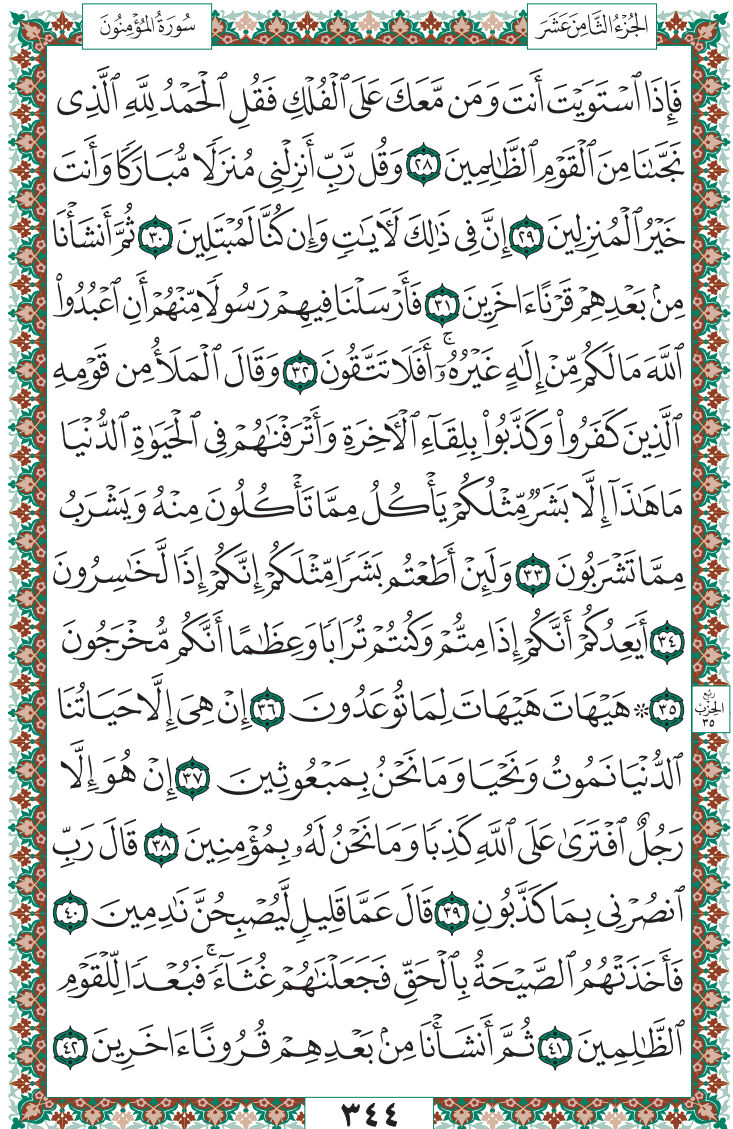 الجُزْءُ الثَّامِنَ عَشَرَ
سُورَةُ المُؤْمِنُونَ
فَإِذَا ٱسْتَوَيْتَ أَنتَ وَمَن مَّعَكَ عَلَى ٱلْفُلْكِ فَقُلِ ٱلْحَمْدُ لِلَّهِ ٱلَّذِى
نَجَّىٰنَا مِنَ ٱلْقَوْمِ ٱلظَّٰلِمِينَ ٢٨ وَقُل رَّبِّ أَنزِلْنِى مُنزَلًا مُّبَارَكًا وَأَنتَ
خَيْرُ ٱلْمُنزِلِينَ ٢٩ إِنَّ فِى ذَٰلِكَ لَءَايَٰتٍ وَإِن كُنَّا لَمُبْتَلِينَ ٣٠ ثُمَّ أَنشَأْنَا
مِنۢ بَعْدِهِمْ قَرْنًا ءَاخَرِينَ ٣١ فَأَرْسَلْنَا فِيهِمْ رَسُولًا مِّنْهُمْ أَنِ ٱعْبُدُوا۟
ٱللَّهَ مَا لَكُم مِّنْ إِلَٰهٍ غَيْرُهُۥٓ ۚ أَفَلَا تَتَّقُونَ ٣٢ وَقَالَ ٱلْمَلَأُ مِن قَوْمِهِ
ٱلَّذِينَ كَفَرُوا۟ وَكَذَّبُوا۟ بِلِقَآءِ ٱلْءَاخِرَةِ وَأَتْرَفْنَٰهُمْ فِى ٱلْحَيَوٰةِ ٱلدُّنْيَا
مَا هَٰذَآ إِلَّا بَشَرٌ مِّثْلُكُمْ يَأْكُلُ مِمَّا تَأْكُلُونَ مِنْهُ وَيَشْرَبُ
مِمَّا تَشْرَبُونَ ٣٣ وَلَئِنْ أَطَعْتُم بَشَرًا مِّثْلَكُمْ إِنَّكُمْ إِذًا لَّخَٰسِرُونَ
٣٤ أَيَعِدُكُمْ أَنَّكُمْ إِذَا مِتُّمْ وَكُنتُمْ تُرَابًا وَعِظَٰمًا أَنَّكُم مُّخْرَجُونَ
٣٥ ۞ هَيْهَاتَ هَيْهَاتَ لِمَا تُوعَدُونَ ٣٦ إِنْ هِىَ إِلَّا حَيَاتُنَا
ربع الحزب ٣٥
ٱلدُّنْيَا نَمُوتُ وَنَحْيَا وَمَا نَحْنُ بِمَبْعُوثِينَ ٣٧ إِنْ هُوَ إِلَّا
رَجُلٌ ٱفْتَرَىٰ عَلَى ٱللَّهِ كَذِبًا وَمَا نَحْنُ لَهُۥ بِمُؤْمِنِينَ ٣٨ قَالَ رَبِّ
ٱنصُرْنِى بِمَا كَذَّبُونِ ٣٩ قَالَ عَمَّا قَلِيلٍ لَّيُصْبِحُنَّ نَٰدِمِينَ ٤٠
فَأَخَذَتْهُمُ ٱلصَّيْحَةُ بِٱلْحَقِّ فَجَعَلْنَٰهُمْ غُثَآءً ۚ فَبُعْدًا لِّلْقَوْمِ
ٱلظَّٰلِمِينَ ٤١ ثُمَّ أَنشَأْنَا مِنۢ بَعْدِهِمْ قُرُونًا ءَاخَرِينَ ٤٢
٣٤٤